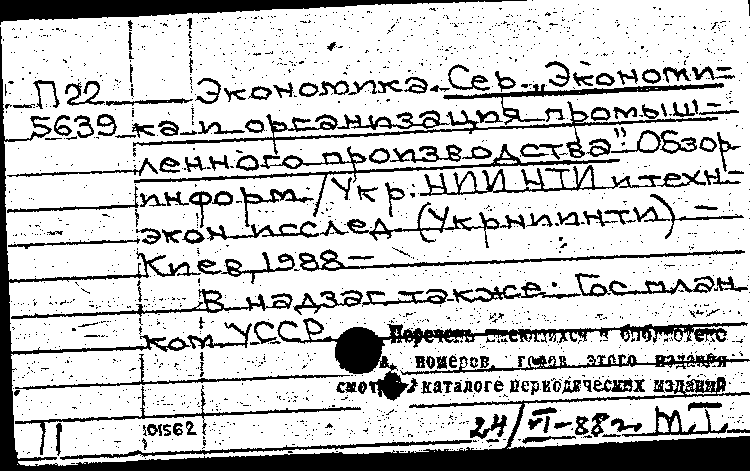 П22 Экономика. Сер. „Экономи=
5639 ка и организация промыш-
ленного производства": Обзор.
информ. / Укр. НИИ НТИ и техн-
экон. исслед (Укрниинти) –
Киев, 1988 –
В надзаг. также: Гос план.
ком УССР
Перечень имеющихся в библиотеке
номеров, годов этого издания
смотри в каталоге периодических изданий
11 01562 24/VI-88г. М.Т.